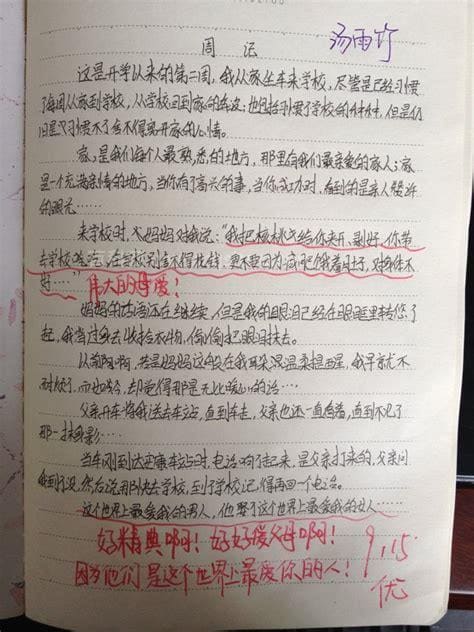 周记
汤雨竹
这是开学以来的第二周，我从家坐车来学校，尽管是已经习惯
了每周从家到学校，从学校回到家的车程；也包括习惯了学校的种种，但是仍
旧是习惯不了舍不得离开家的心情。
家，是我们每个人最熟悉的地方，那里有我们最亲爱的家人；家
是一个充满亲情的地方，当你有了高兴的事，当你成功时，看到的是亲人赞许
的眼光……
来学校时，妈妈对我说："我把核桃给你夹开、剥好，你带
去学校吃，在学校别舍不得花钱，更不要因为减肥饿着肚子，对身体不
好……"
伟大的母爱！
妈妈的话还在继续，但是我的眼泪已经在眼眶里转悠了
起，我当过身去收拾衣物，偷偷把眼泪抹去。
从前啊，若是妈妈这般在我耳朵，我早就不
耐烦了，而如今，却觉得那是无比暖心的话……
父亲开车将我送去车站，直到车走，父亲也还一直看着，直到不见了
那一抹身影……
当车刚到达车站时，电话响了起来，是父亲打来的，父亲问
我到了没，然后说用快去学校，到了学校记得再回一个电话。
这个世界上最爱我的男人，他娶了这个世界上最爱我的女人……
好精典啊！好好爱父母啊！
因为他们是这个世界上最爱你的人！
9.15
优